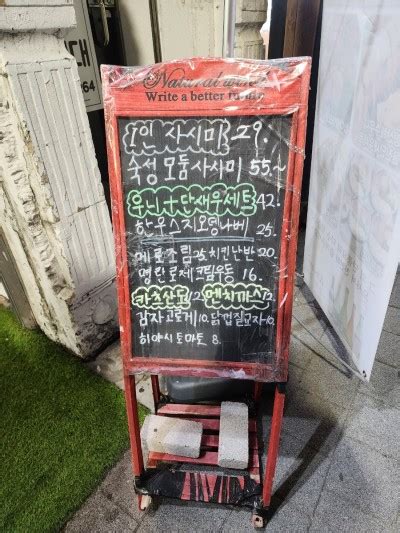 Natural wine
Write a better
1인 사시미 29.
숙성 모둠사시미 55.~
우니+단새우세트 42.
한우스지오뎅나베 25.
메로조림 25. 치킨난반 20.
명란로제크림우동 16.
카츠산도 12. 멘치까스 12.
감자고로케 10. 닭껍질교자 10.
히야시토마토 8.